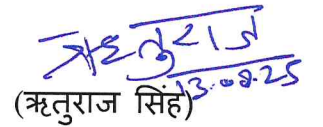 ऋतुराज
13.08.25
(ऋतुराज सिंह)